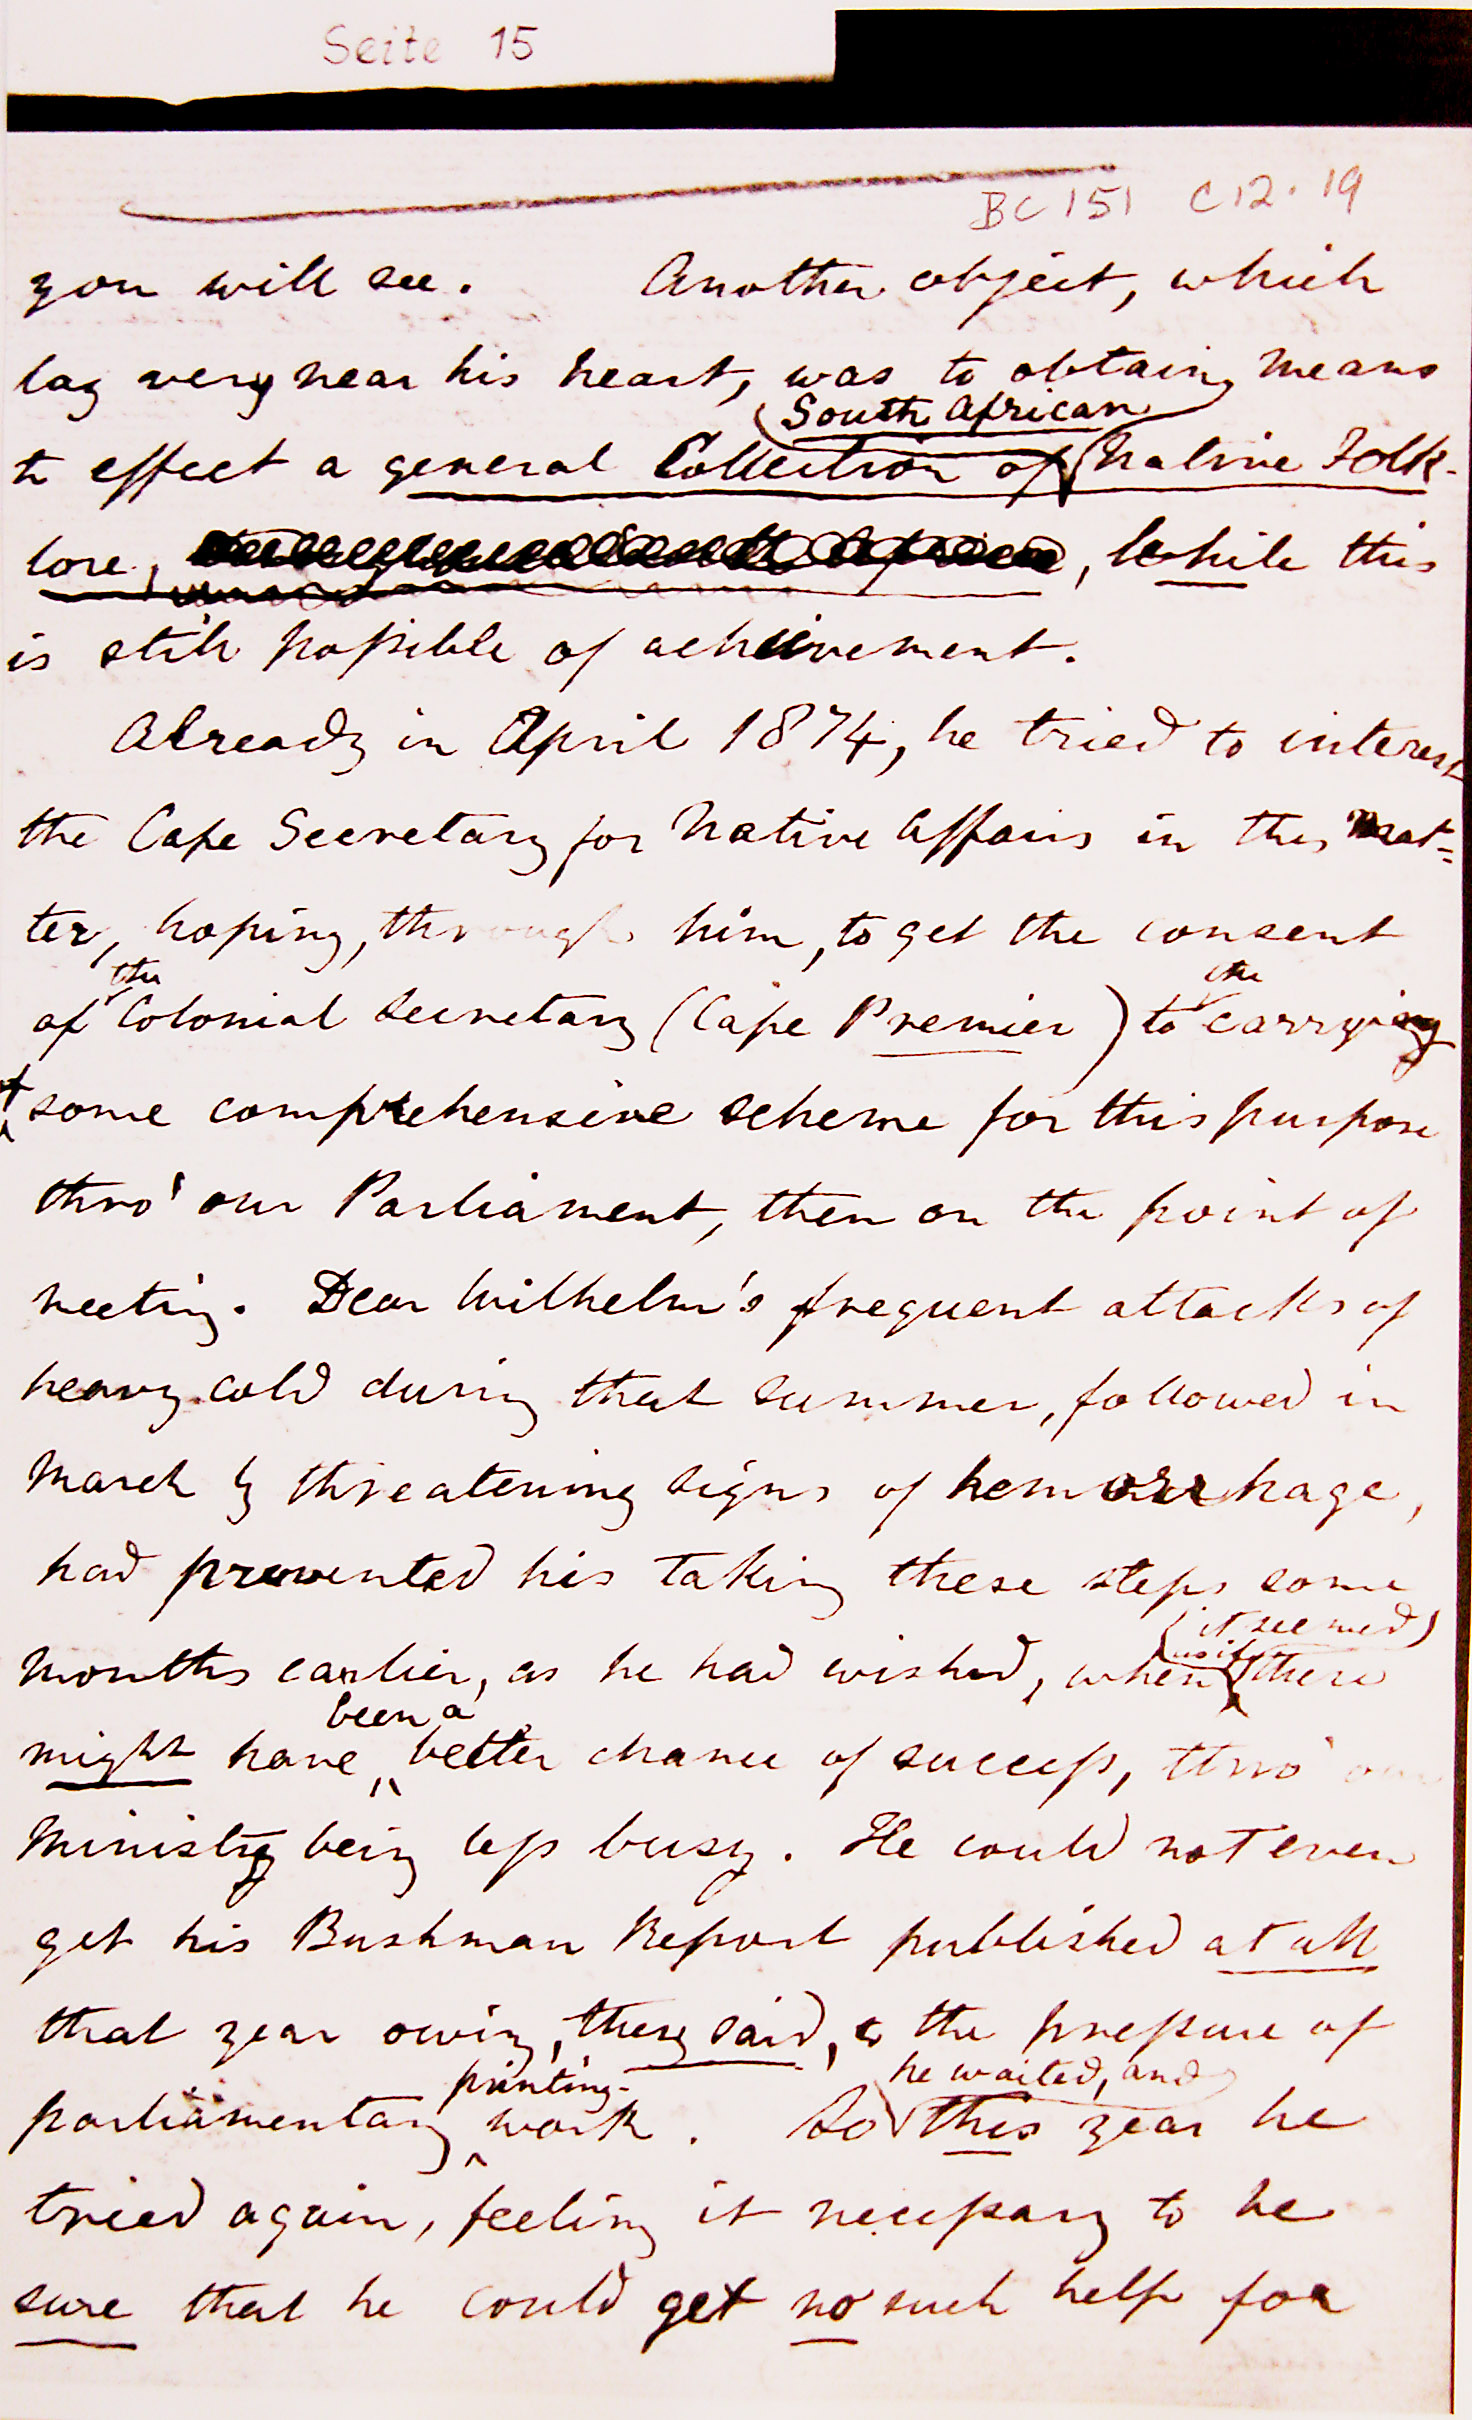 Seite 15
BC 151 C12.19
you will see. Another object, which
lay very near his heart, was to obtain means
South African
to effect a general Collection of Native Folk-
lore, , while this
is still possible of acheivement.
Already in April 1874, he tried to interest
the Cape Secretary for Native Affairs in this mat=
ter, hoping, through him, to get the consent
the the
of Colonial Secretary (Cape Premier) to carrying
of some comprehensive scheme for this purpose
thro' our Parliament, then on the point of
meeting. Dear Wilhelm's frequent attacks of
heavy cold during that summer, followed in
March by threatening signs of hemorrhage,
had prevented his taking these steps some
(it seemed)
as if
months earlier, as he had wished, when there
been a
might have better chance of success, thro' our
Ministry being less busy. He could not even
get his Bushman Report published at all
that year owing, they said, to the pressure of
printing- he waited, and
parliamentary work. So this year he
tried again, feeling it necessary to be
sure that he could get no such help for